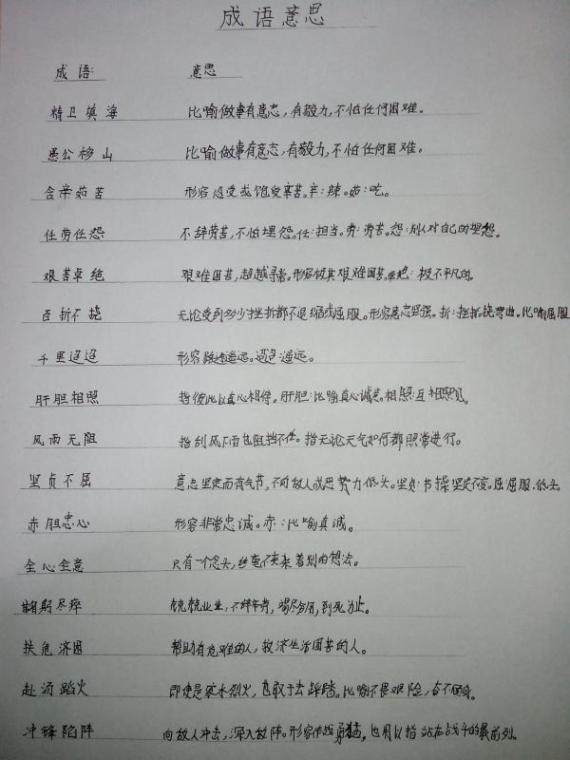 成语意思
成语: 意思
精卫填海 比喻做事有意志,有毅力,不怕任何困难。
愚公移山 比喻做事有意志,有毅力,不怕任何困难。
含辛茹苦 形容感受或饱受辛苦。辛:辣。茹:吃。
任劳任怨 不辞劳苦,不怕埋怨。任:担当。劳:劳苦。怨:别人对自己的埋怨。
艰苦卓绝 艰难困苦,超越寻常。形容极其艰难困苦。卓绝:极不平凡的。
百折不挠 无论受到多少挫折都不退缩或屈服。形容意志坚强。折:挫折。挠:弯曲。比喻屈服
千里迢迢 形容路途遥远。迢迢:遥远。
肝胆相照 指彼此以真心相待。肝胆:比喻真心诚意。相照:互相照见。
风雨无阻 指刮风下雨也阻挡不住。指无论天气如何都照常进行。
坚贞不屈 意志坚定而有气节,不向敌人或恶势力低头。坚贞:节操坚定不变。屈:屈服,低头。
赤胆忠心 形容非常忠诚。赤:比喻真诚。
全心全意 只有一个念头,丝毫不夹杂着别的想法。
鞠躬尽瘁 兢兢业业,不辞辛劳,竭尽全力,到死为止。
扶危济困 帮助有危难的人,救济生活困苦的人。
赴汤蹈火 即使是滚水烈火,也敢于去踩踏。比喻不畏艰险,奋不顾身。
冲锋陷阵 向敌人冲击,深入敌阵。形容作战勇猛,也用以指站在战斗的最前列。